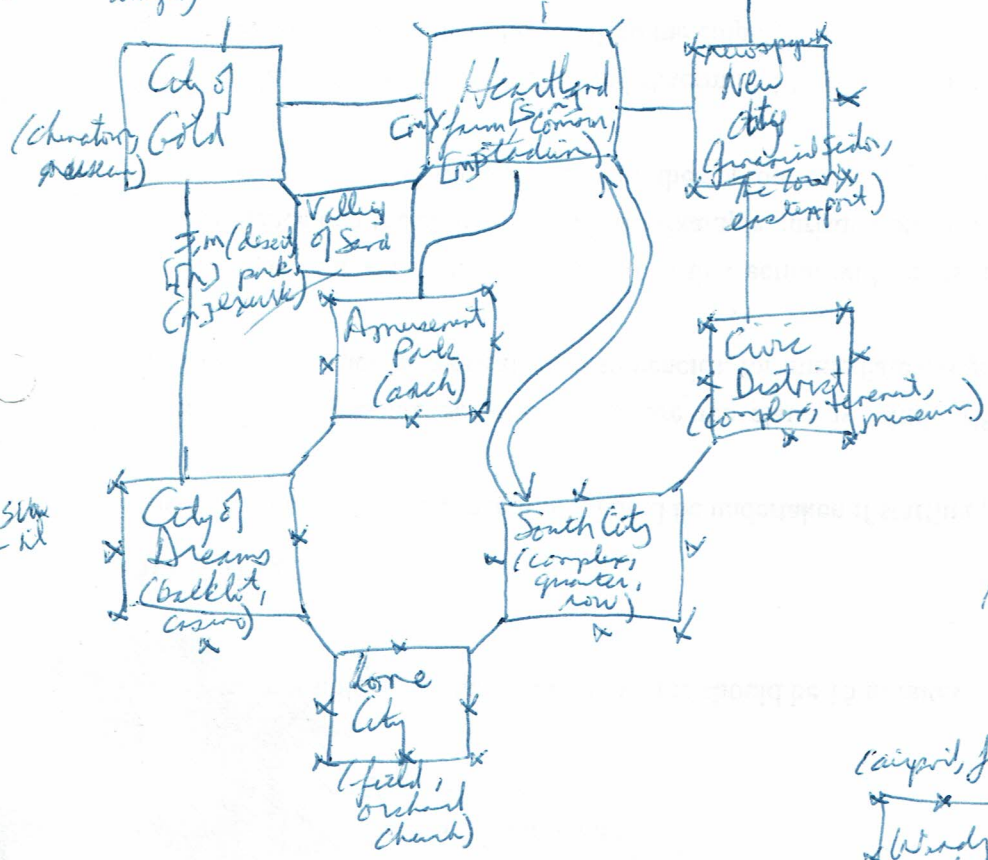 City of
Gold
(chinatown,
museum)
Heartland
[m] (farm, [sm] common,
[m] stadium)
newspaper
New
City
(financial sector,
The Town
easternport)
Valley
of Sand
(desert,
park,
Amusement
Park
(arch)
Civic
District
(complex, tenement,
museum)
City of
Dreams
(backlot,
casino)
South City
(complex,
quarter,
row)
Lone
City
(field,
orchard
church)
(airport,
Windy